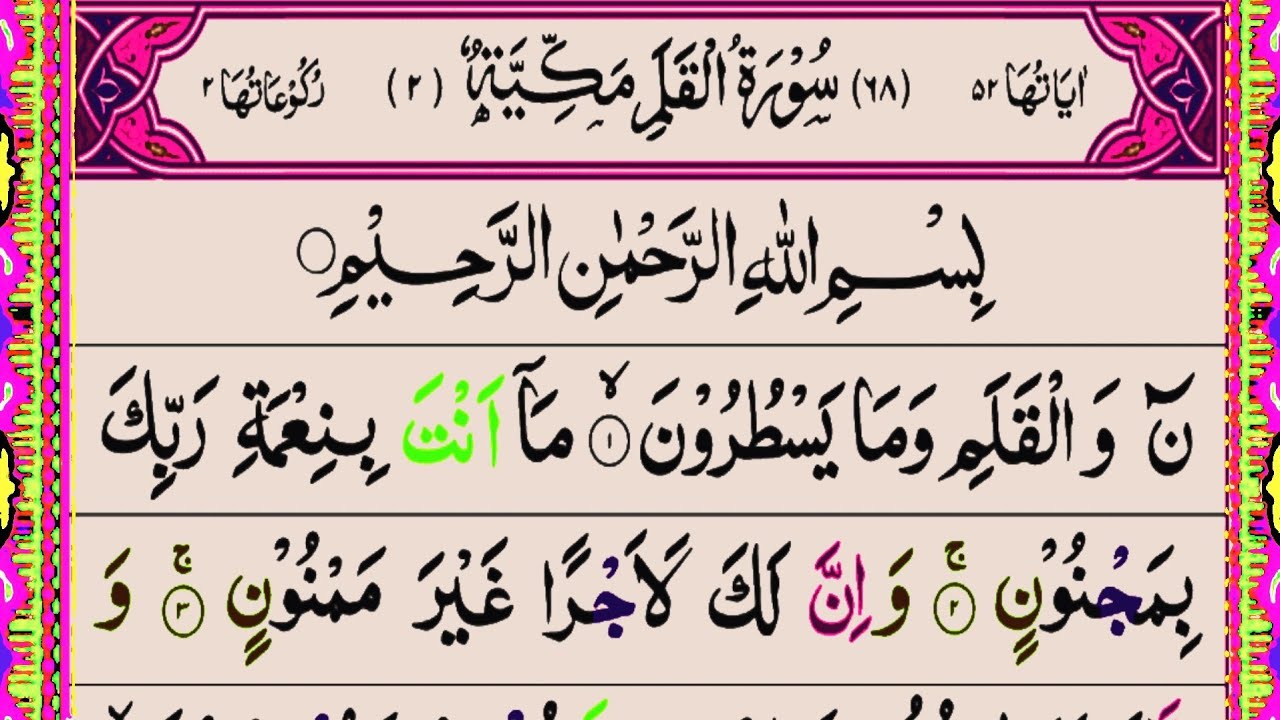 اٰيَاتُهَا ٥٢ (٦٨) سُوْرَةُ الْقَلَمِ مَكِّيَّةٌ (٢) رُكُوْعَاتُهَا ٢
بِسْمِ اللّٰهِ الرَّحْمٰنِ الرَّحِيْمِ
نٓ وَ الْقَلَمِ وَمَا يَسْطُرُوْنَ ۙ‏١ مَاۤ اَنْتَ بِنِعْمَةِ رَبِّكَ
بِمَجْنُوْنٍ ۚ‏٢ وَاِنَّ لَكَ لَاَجْرًا غَيْرَ مَمْنُوْنٍ ۚ‏٣ وَ